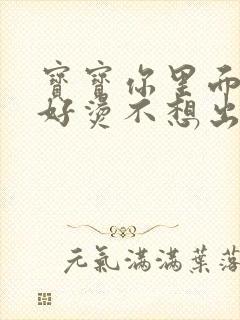 寶寶你里面
好燙不想出
元氣滿滿葉落